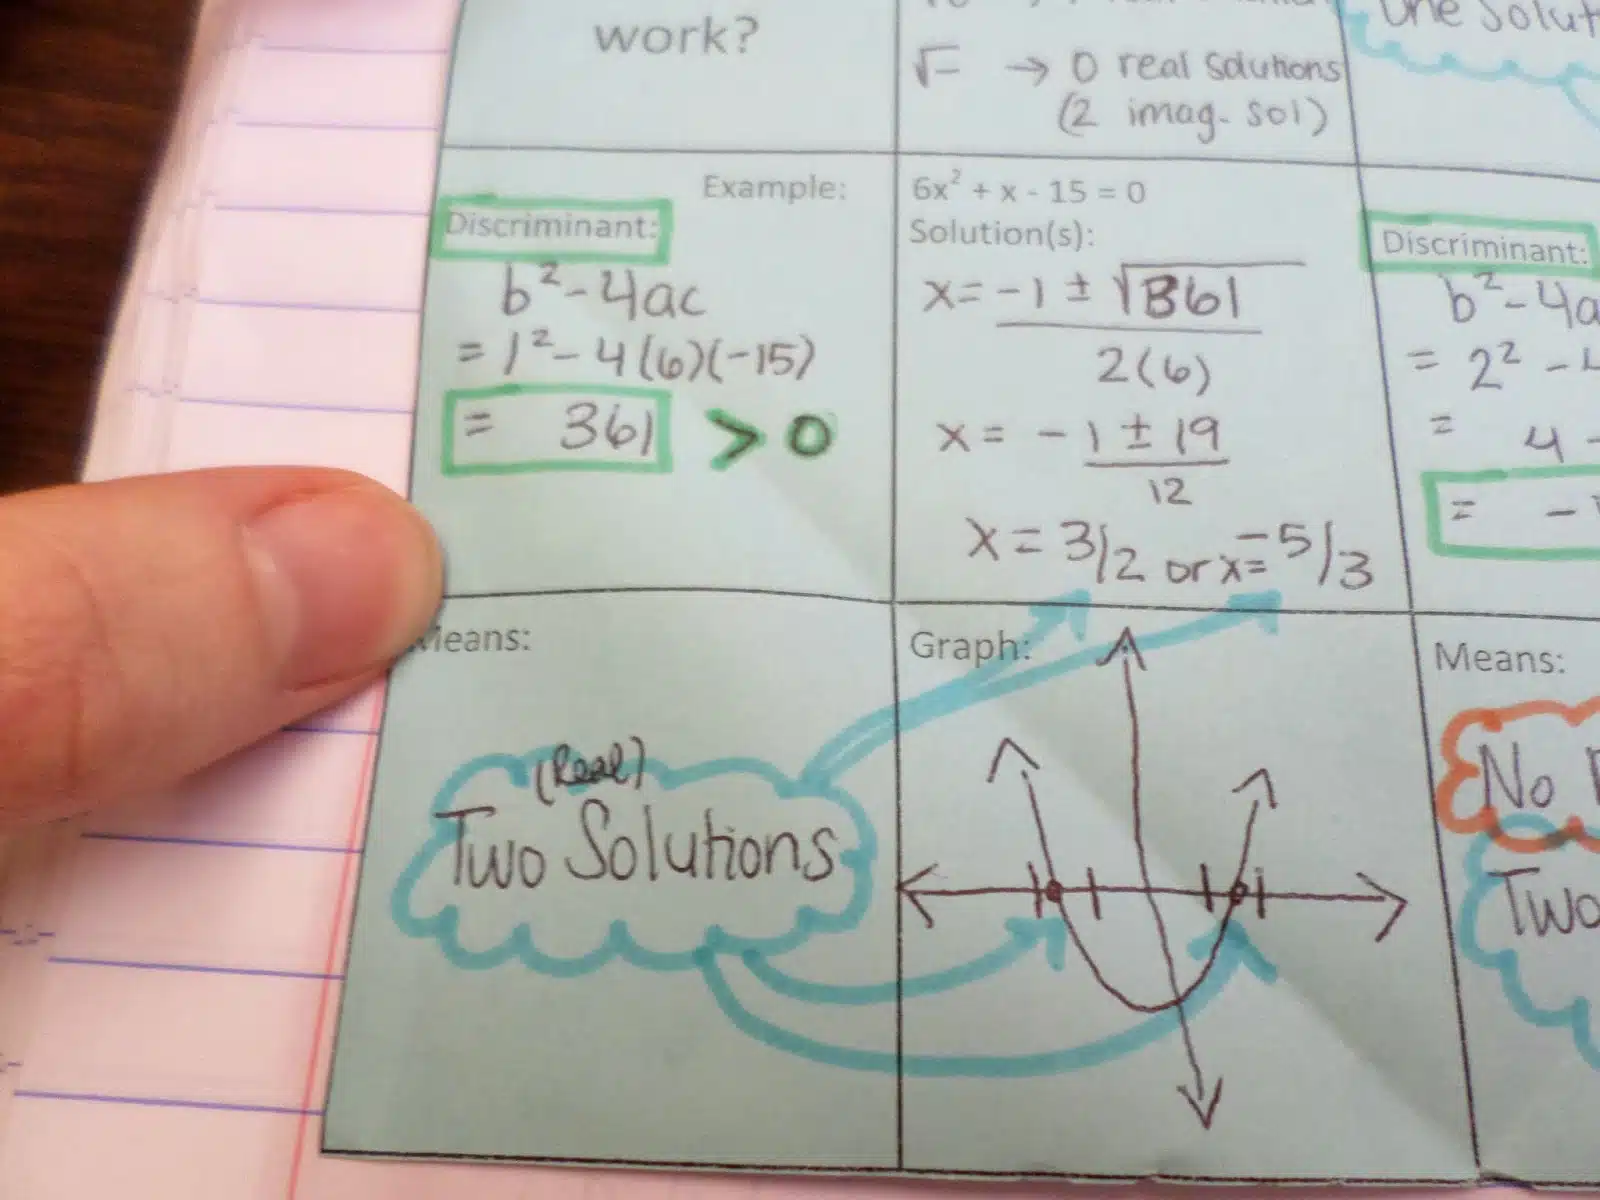 work?
√- → 0 real solutions
(2 imag. sol)
One Solut
Example:
Discriminant:
b²-4ac
= 1² - 4(6)(-15)
= 361 > 0
6x² + x - 15 = 0
Solution(s):
x= -1 ± √361
2(6)
x= -1 ± 19
12
x = 3/2 or x= -5/3
Discriminant:
b²-4a
= 2² -
= 4 -
= -
Means:
(Real)
Two Solutions
Graph:
Means:
No
Two